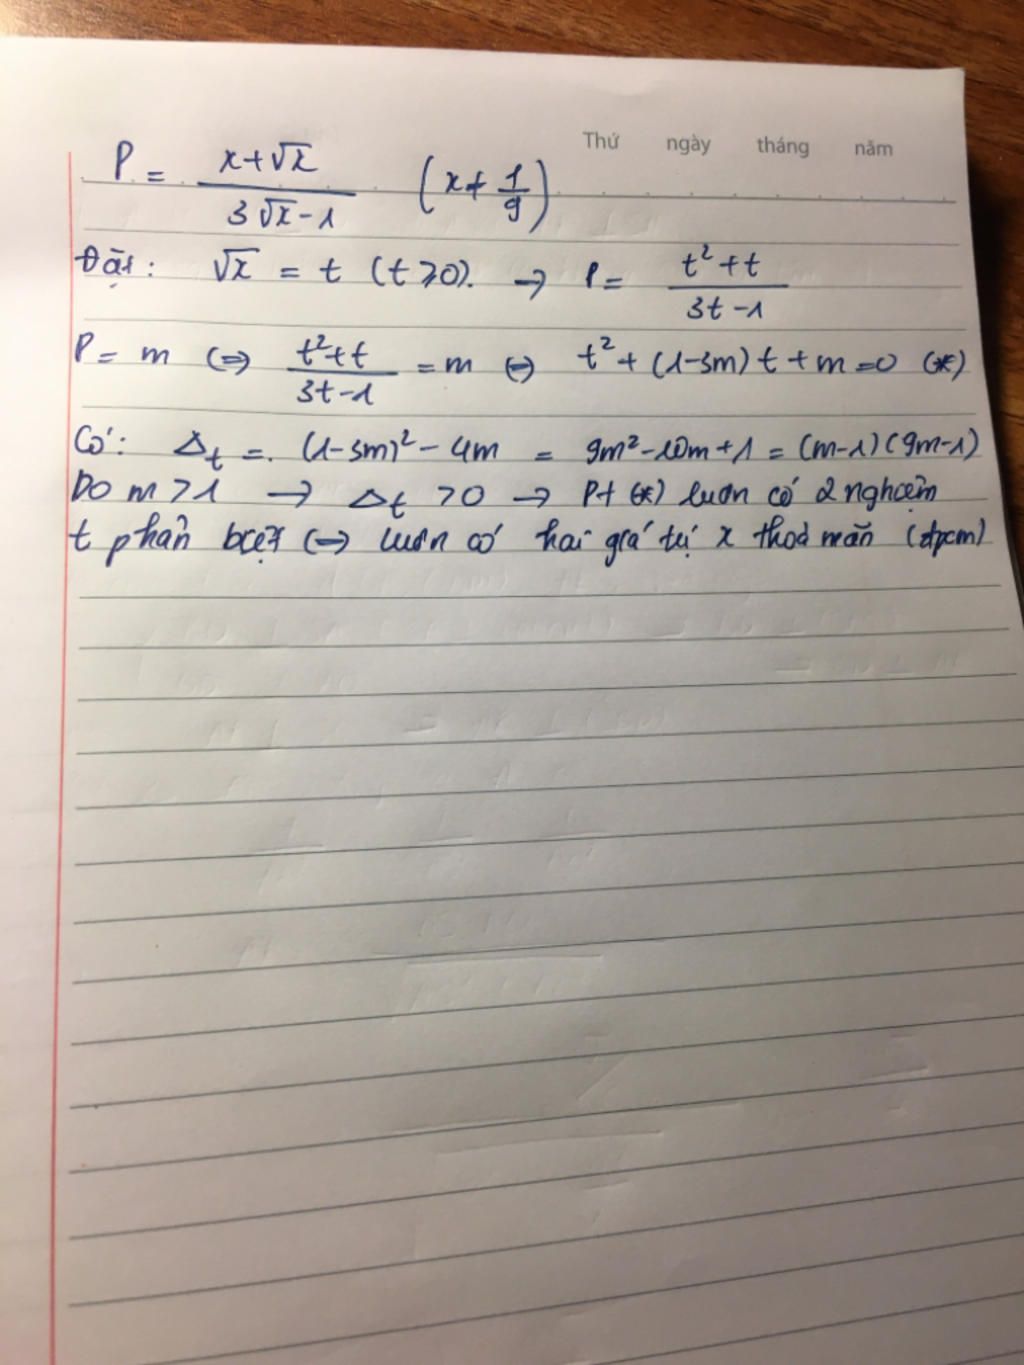 Thứ ngày tháng năm
P = (x+√x)/(3√x-1) (x ≠ 1/9)
Đặt: √x = t (t ≥ 0). → P = (t²+t)/(3t-1)
P = m ⇔ (t²+t)/(3t-1) = m ⇔ t² + (1-3m)t + m = 0 (*)
Có: Δt = (1-3m)² - 4m = 9m² - 10m + 1 = (m-1)(9m-1)
Do m > 1 → Δt > 0 → Pt (*) luôn có 2 nghiệm
t phân biệt ⇔ luôn có hai giá trị x thoả mãn (đpcm)